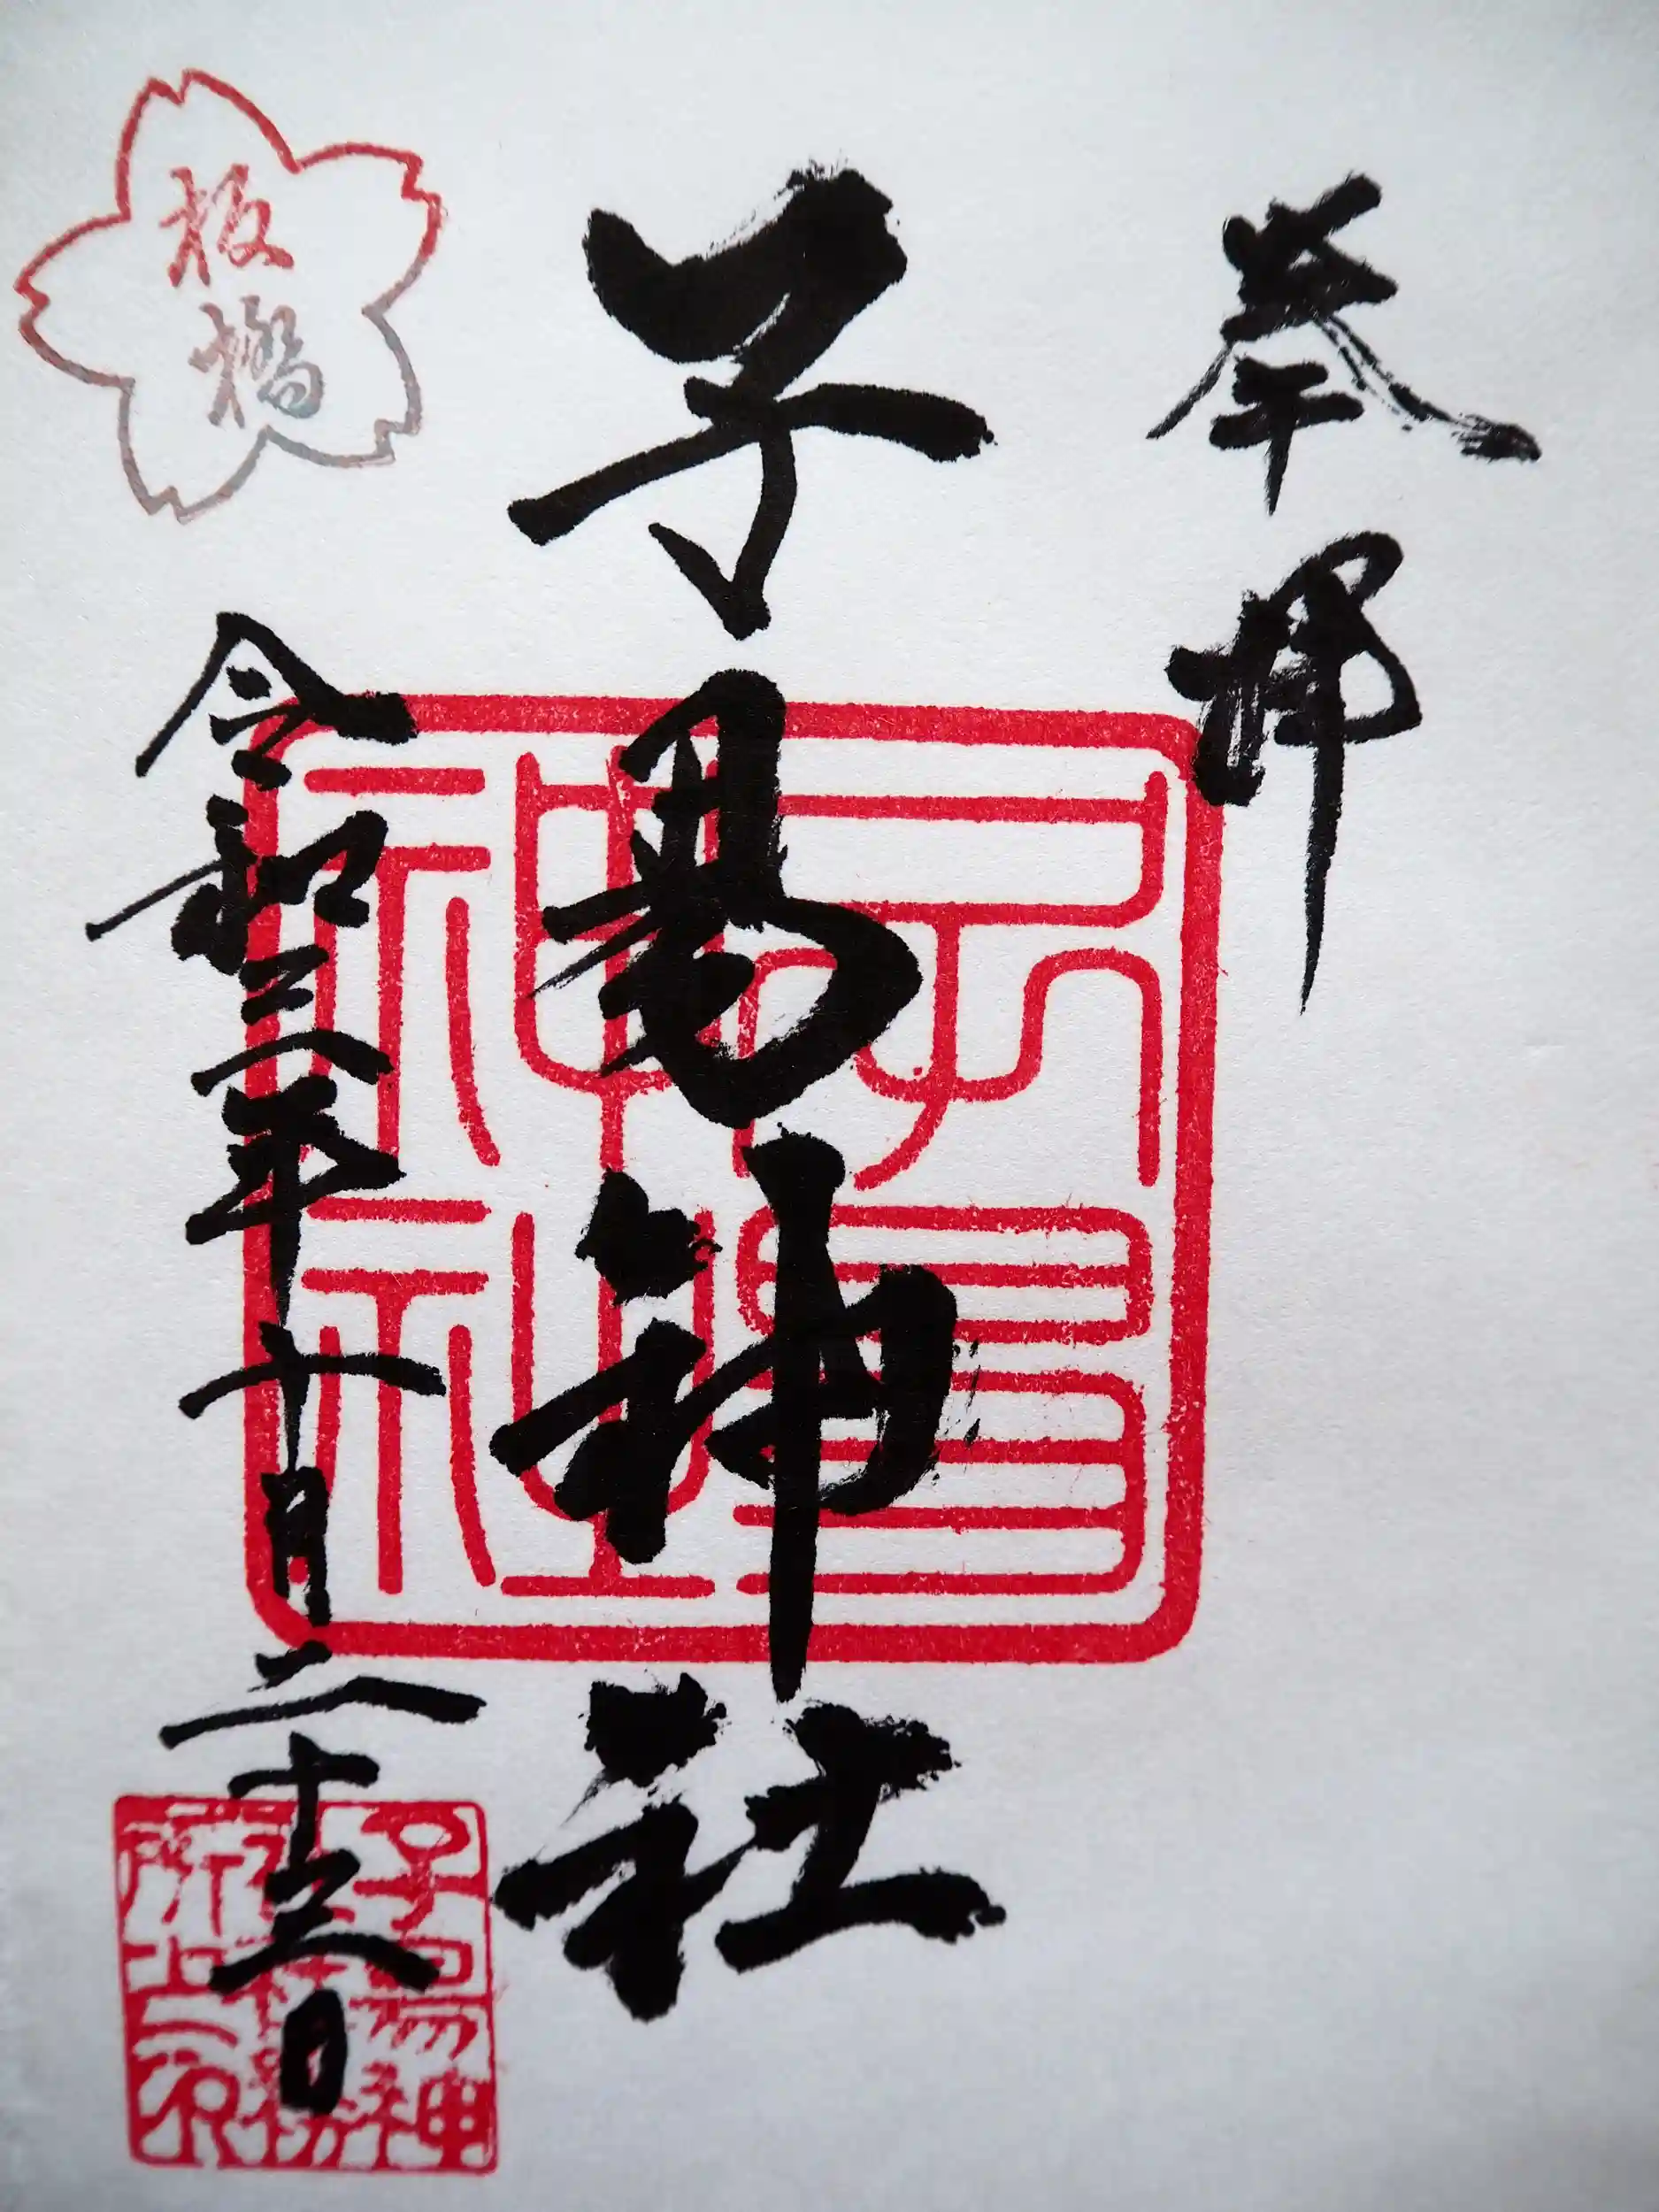 奉拝
子易神社
子易
神社
板橋
令和三年十月二十三日
子易神